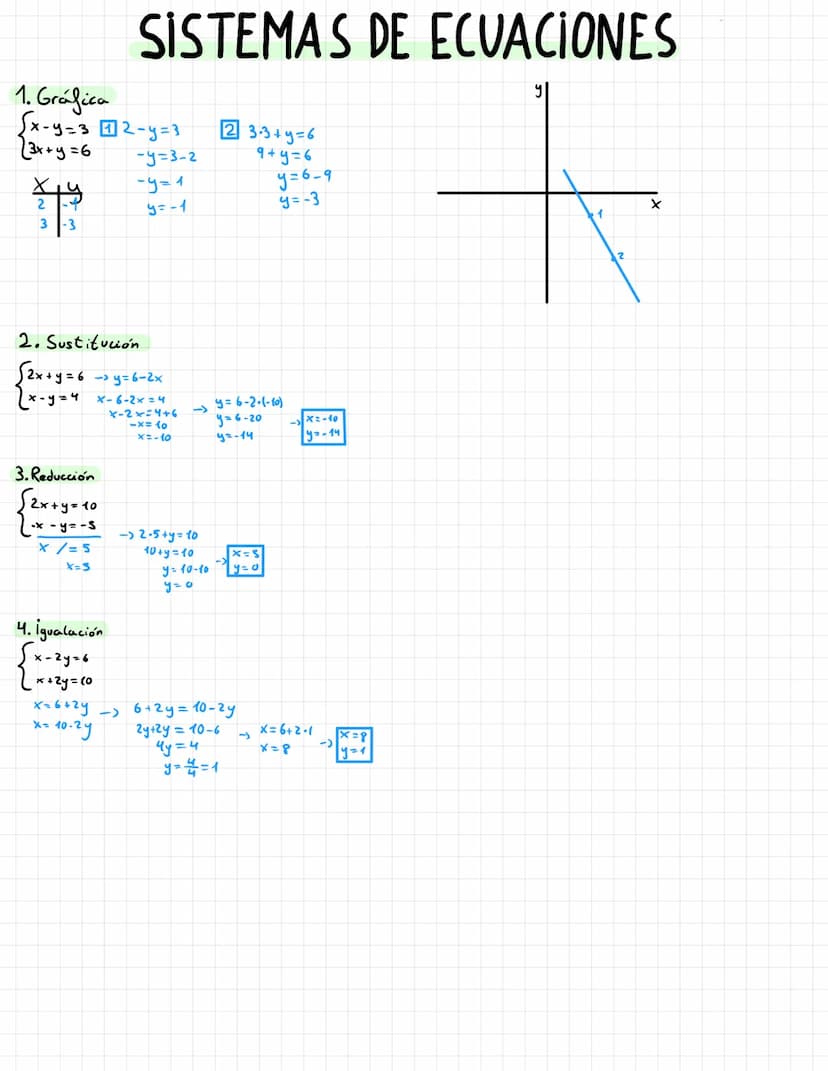 SISTEMAS DE ECUACIONES
1. Gráfica
x-y=3
3x+y=6
x y
2 -1
3 -3
1 2-y=3
-y=3-2
-y=1
y=-1
2 3·3+y=6
9+y=6
y=6-9
y=-3
y
x
1
2
2. Sustitución
2x+y=6 -> y=6-2x
x-y=4
x-6-2x=4
x-2x=4+6
-x=10
x=-10
-> y=6-2·(-10)
y=6-20
y=-14
-> x=-10
y=-14
3. Reducción
2x+y=10
-x-y=-5
x /=5
x=5
-> 2·5+y=10
10+y=10
y=10-10
y=0
-> x=5
y=0
4. igualación
x-2y=6
x+2y=10
x=6+2y
x=10-2y
-> 6+2y=10-2y
2y+2y=10-6
4y=4
y=4/4=1
-> x=6+2·1
x=8
-> x=8
y=1